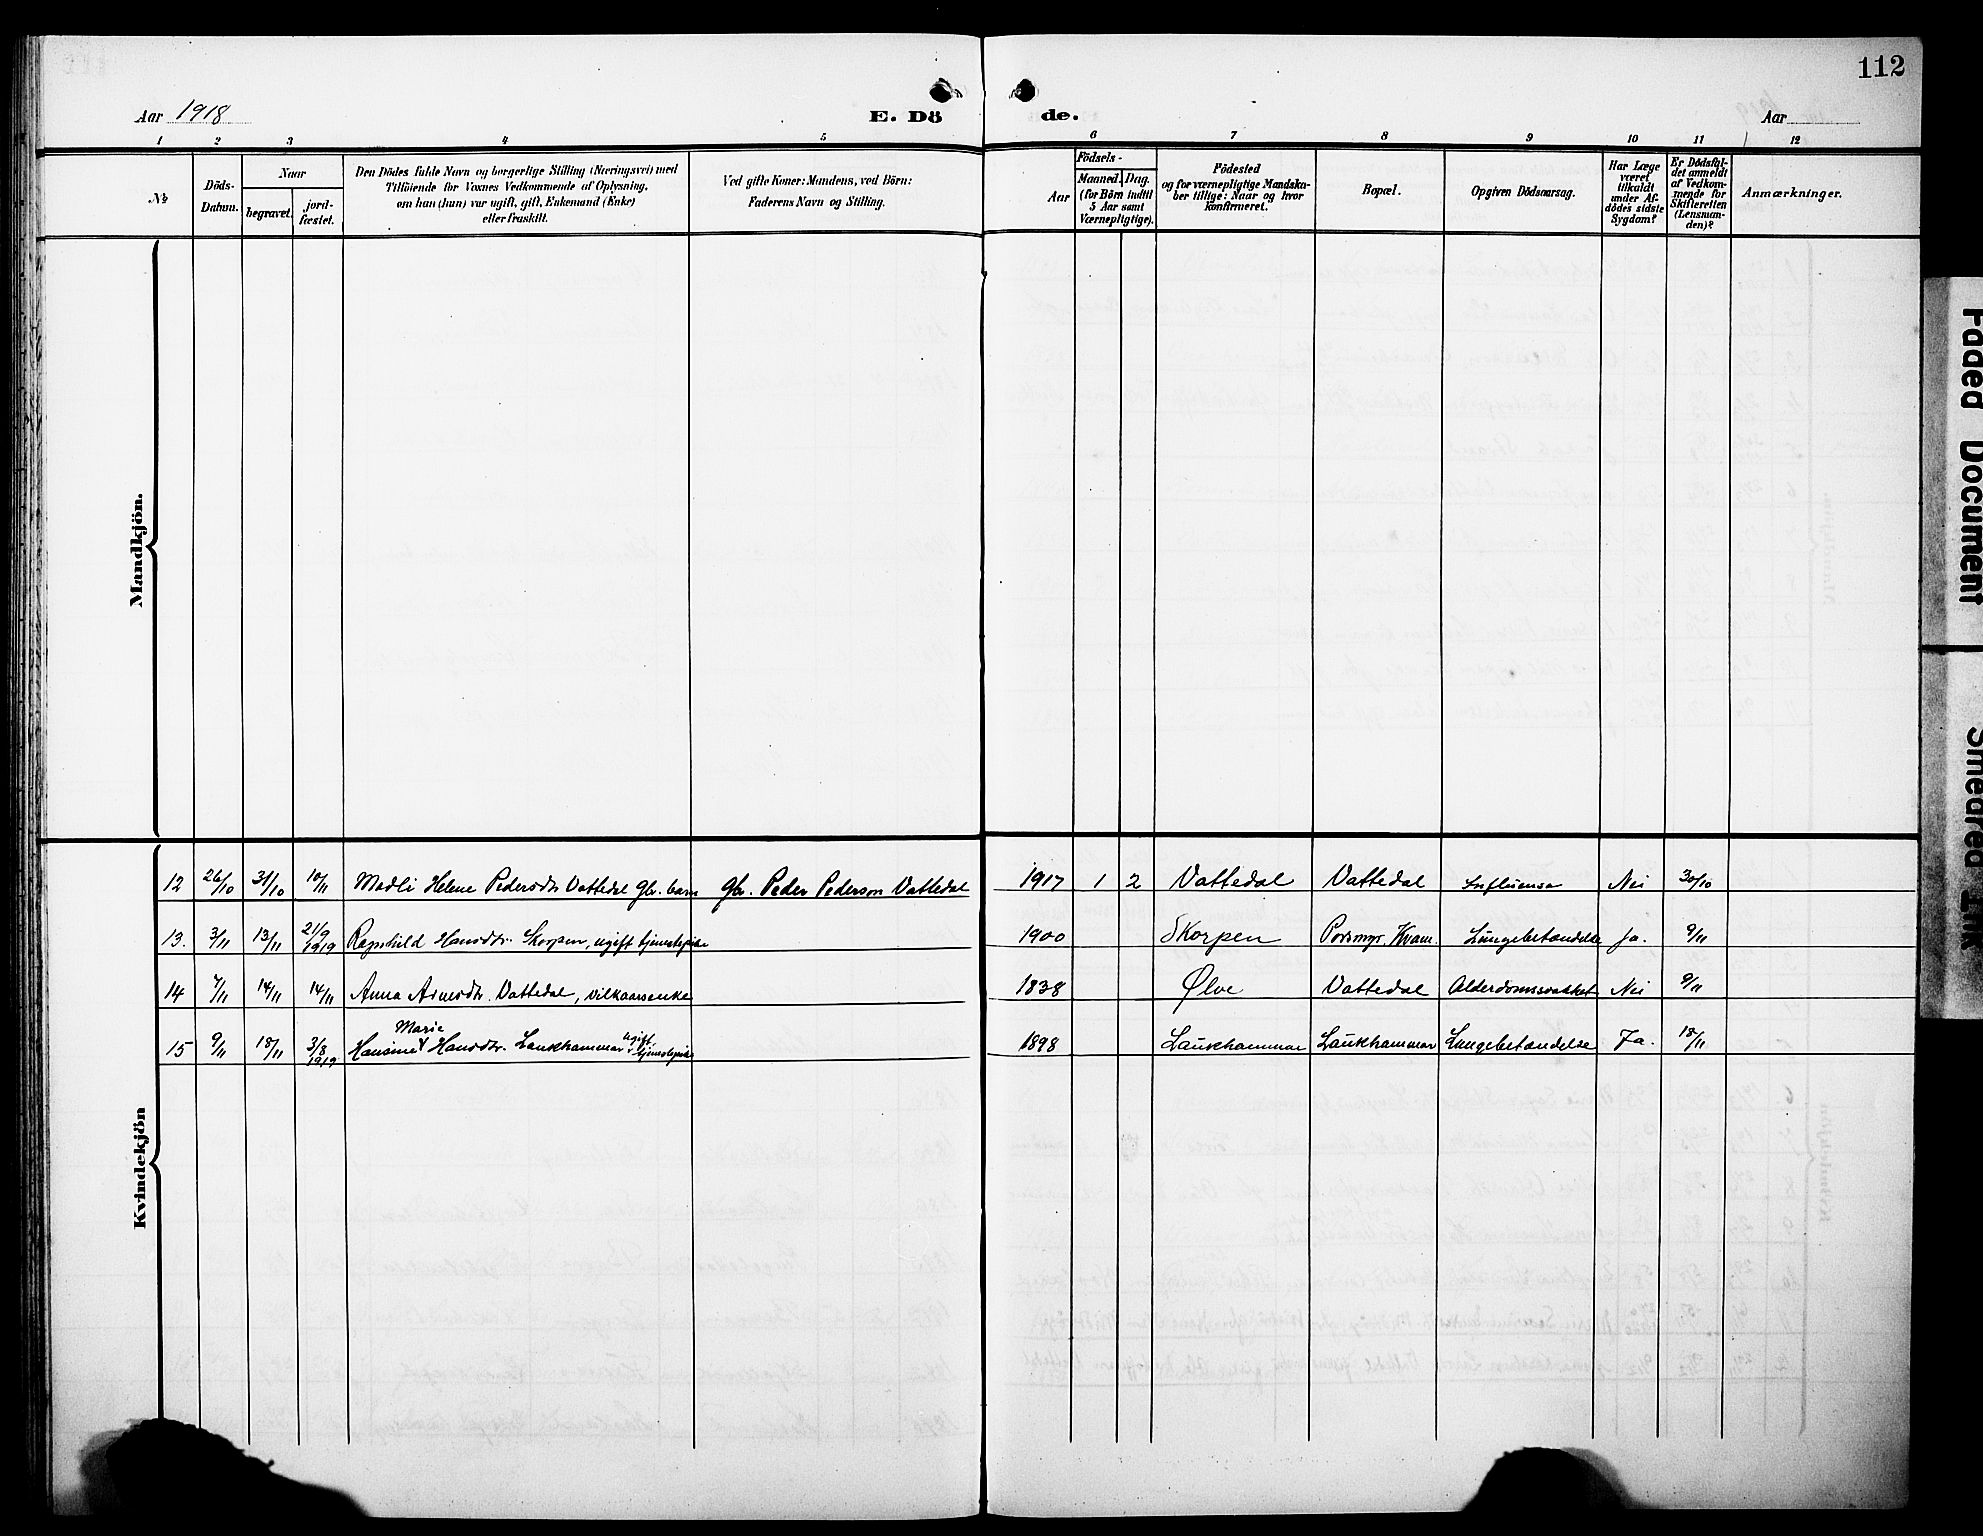 112
Aar 1918
E. Dö
de.
Aar
1 2 3 4 5 6 7 8 9 10 11 12
№
Döds-
Datum.
Naar
begravet.
jord-
fæstet.
Den Dödes fulde Navn og borgerlige Stilling (Næringsvei) med
Tilföiende for Voxnes Vedkommende af Oplysning,
om han (hun) var ugift, gift, Enkemand (Enke)
eller fraskilt.
Ved gifte Koner: Mandens, ved Börn:
Faderens Navn og Stilling.
Födsels-
Aar
Maaned. Dag.
(for Börn indtil
5 Aar samt
Værnepligtige).
Födested
og for værnepligtige Mandska-
ber tillige: Naar og hvor
konfirmeret.
Bopæl.
Opgiven Dödsaarsag.
Har Læge
været
tilkaldt
under Af-
dödes sidste
Sygdom?
Er Dödsfal-
det anmeldt
af Vedkom-
mende for
Skifteretten
(Lensman-
den)?
Anmærkninger.
Mandkjön.
Kvindekjön
12 26/10 31/10 10/11 Madli Helene Pedersdtr Vattedal Gbr. barn Gbr. Peder Pederson Vattedal 1917 1 2 Vattedal Vattedal Influensa Nei 30/10
13. 3/11 13/11 21/9 1919 Ragnhild Hansdtr. Skorpen, ugift tjenestepike 1900 Skorpen Porsmyr. Kvam. Lungebetændelse Ja. 9/11
14 7/11 14/11 14/11 Anna Arnesdtr. Vattedal, vilkaarsenke 1838 Ølve Vattedal Alderdomssvakhet Nei 9/11
15 9/11 18/11 3/8 1919 Hansine Marie Hansdtr. Laukhammar ugift tjenestepike 1898 Laukhammar Laukhammar Lungebetændelse Ja. 18/11
Faded Document
Smeared Ink